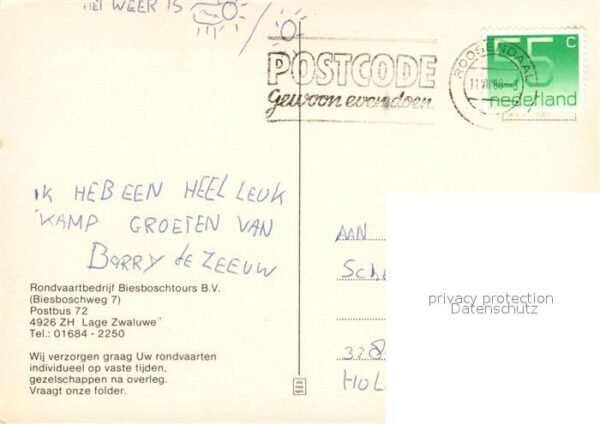 HET WEER IS
POSTCODE
Gewoon even doen.
ROOSENDAAL
11.VII.86-3
55 c
nederland
IK HEB EEN HEEL LEUK
KAMP GROETEN VAN
BARRY de ZEEUW
Rondvaartbedrijf Biesboschtours B.V.
(Biesboschweg 7)
Postbus 72
4926 ZH Lage Zwaluwe
Tel.: 01684 - 2250
Wij verzorgen graag Uw rondvaarten
individueel op vaste tijden,
gezelschappen na overleg.
Vraagt onze folder.
AAN
privacy protection
Datenschutz
HOL